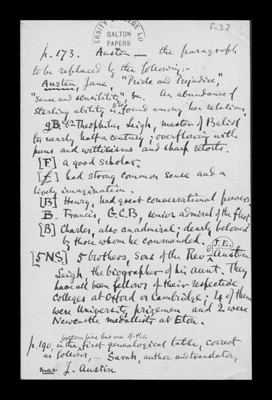 F.33
ERSITY COLLEGE LO
GALTON
PAPERS
p. 173. Austen — the paragraph
to be replaced by the following:—
Austen, Jane, "Pride and Prejudice,"
"Sense and sensibility," &c. An abundance of
sterling ability is also found among her relations,
gB. Theophilus Leigh, master of Baliol
for nearly half a century; overflowing with
puns and witticisms and sharp retorts.
[F] a good scholar,
[f] had strong common sense and a
lively imagination.
[B] Henry, had great conversational powers,
B. Francis, G.C.B, senior admiral of the fleet
[B] Charles, also an admiral; dearly beloved
by those whom he commanded.
[5 NS] 5 brothers, sons of the Revd J.E. Austen
Leigh the biographer of his aunt. They
have all been fellows of their respective
colleges at Oxford or Cambridge; 4 of them
were University prizemen and 2 were
Newcastle medallists at Eton.
bottom line but one of the
p. 190, in the first genealogical table, correct
as follows, — Sarah, author and translator,
mar J. Austin